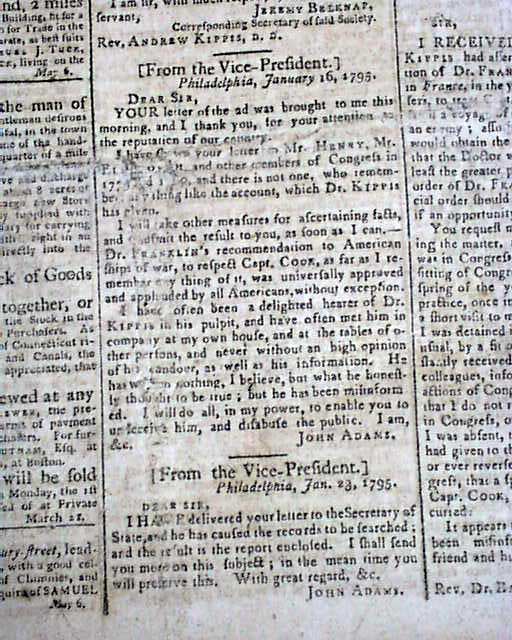 nd, 2 miles
Building, fit for a
for Trade in the
arate, as best suits
UEL J. TUCK,
CK, living on the
May 6.
the man of
ntleman desirous
ital, in the town
one of the hand-
quarter of a mile
ve and discharge
an 8 acres of
large new Store
y supplied with
sary for carrying
with right in an
directly into the
ck of Goods
together, or
the Stock in the
Purchasers. As
of Connecticut ri-
and Canals, the
appreciated, that
ewed at any
the pre-
ment of payment
chasers. For fur-
Esq. at
at Boston.
will be sold
Monday, the 1st
ed of at Private
March 21,
bury-street, lead-
with a good cel-
of Chimnies, and
quire of SAMUEL
May 6.
servant, JEREMY BELKNAP,
Corresponding Secretary of said Society.
Rev. ANDREW KIPPIS, D. D.
[From the Vice-President.]
Philadelphia, January 16, 1795.
DEAR SIR,
YOUR letter of the 2d was brought to me this
morning, and I thank you, for your attention to
the reputation of our country.
I have your letter to Mr. HENRY, Mr.
and other members of Congress in
and there is not one, who remem-
any thing like the account, which Dr. KIPPIS
has given.
I will take other measures for ascertaining facts,
and transmit the result to you, as soon as I can.—
Dr. FRANKLIN's recommendation to American
ships of war, to respect Capt. COOK, as far as I re-
member any thing of it, was universally approved
and applauded by all Americans, without exception.
I have often been a delighted hearer of Dr.
KIPPIS in his pulpit, and have often met him in
company at my own house, and at the tables of o-
ther persons, and never without an high opinion
of his candour, as well as his information. He
has written nothing, I believe, but what he honest-
ly thought to be true; but he has been misinform
ed. I will do all, in my power, to enable you to
undeceive him, and disabuse the public. I am,
&c. JOHN ADAMS.
[From the Vice-President.]
Philadelphia, Jan. 23, 1795.
DEAR SIR,
I HAVE delivered your letter to the Secretary of
State, and he has caused the records to be searched;
and the result is the report enclosed. I shall send
you more on this subject; in the mean time you
will preserve this. With great regard, &c.
JOHN ADAMS.
SIR,
I RECEIVED
KIPPIS had asser
tion of Dr. FRAN
in France, in the y
sers, to treat
a voyage of
an enemy; assu
would obtain the
that the Doctor w
least the greater p
order of Dr. FRA
cial order should
if an opportunity
You request m
ing the matter.
was in Congress
sitting of Congr
spring of the y
practice, once in
a short visit to m
I was detained i
usual, by a fit o
stantly received
colleagues, info
actions of Cong
that I do not r
in Congress, o
I was absent,
had given to th
or ever reverse
gress, that a s
Capt. COOK,
cured.
It appears
been misinfo
friend and hu
Rev. Dr. BE